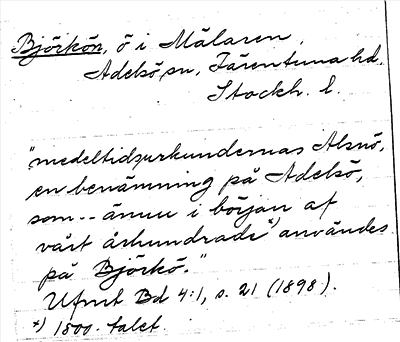 Björkön, ö i Mälaren,
Adelsö sn, Färentuna hd.
Stockh. l.
"medeltidsurkundernas Alsnö,
en benämning på Adelsö,
som -- ännu i början af
vårt århundrade x) användes
på Björkö."
Ufmt Bd 4:1, s. 21 (1898).
x) 1800-talet